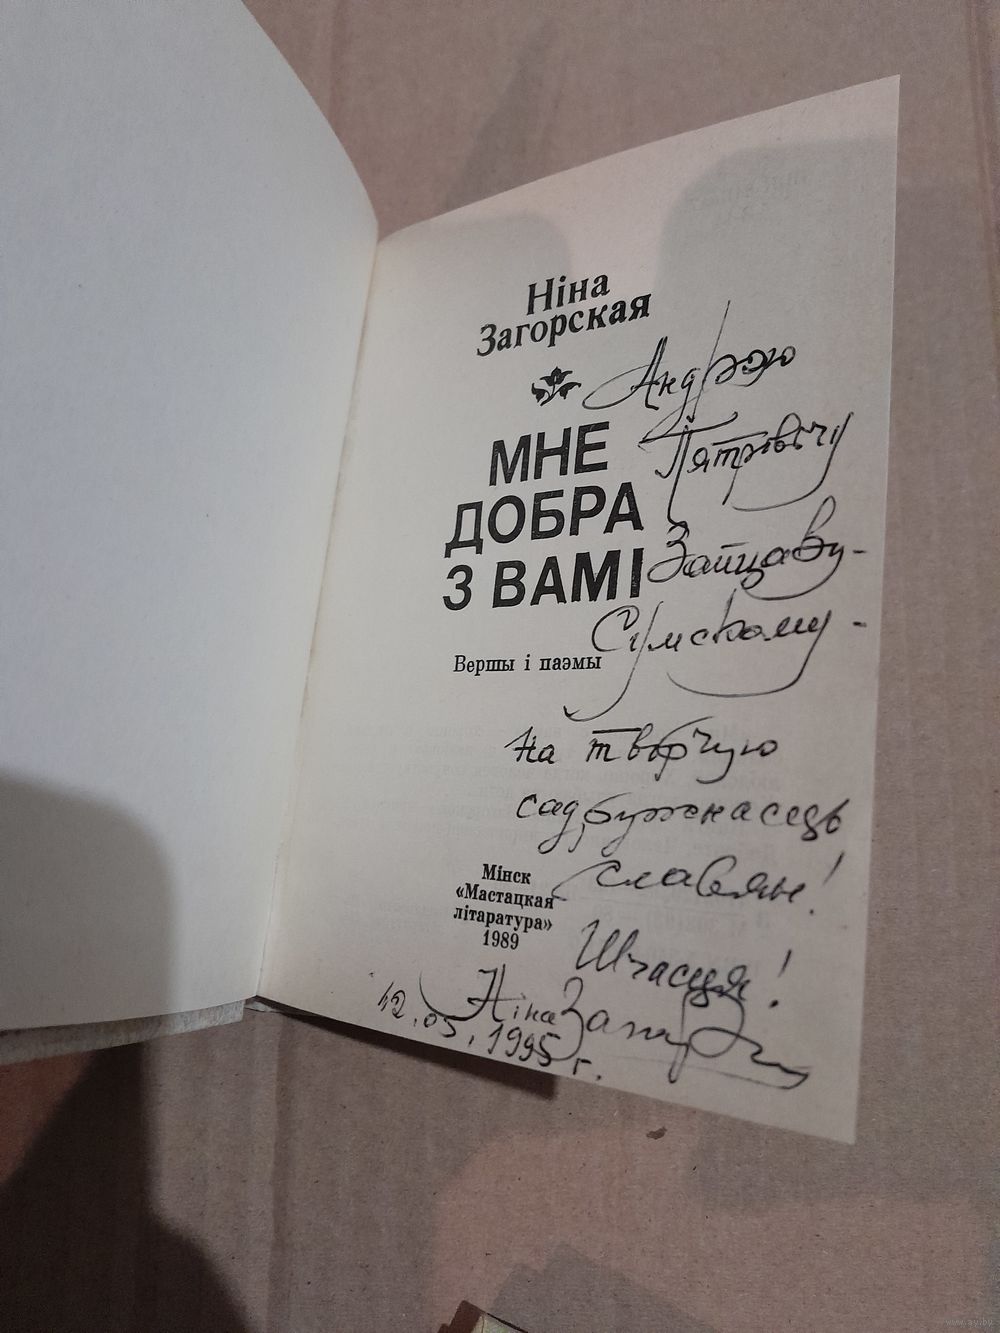 Ніна
Загорская
МНЕ
ДОБРА
З ВАМІ
Вершы і паэмы
Мінск
«Мастацкая
літаратура»
1989
Андрэю
Пятровічу
Зайцаву-
Сумскому -
На творчую
садружнасць
славян!
Шчасця!
Ніна Загорская
12.05.1995 г.
www.ay.by